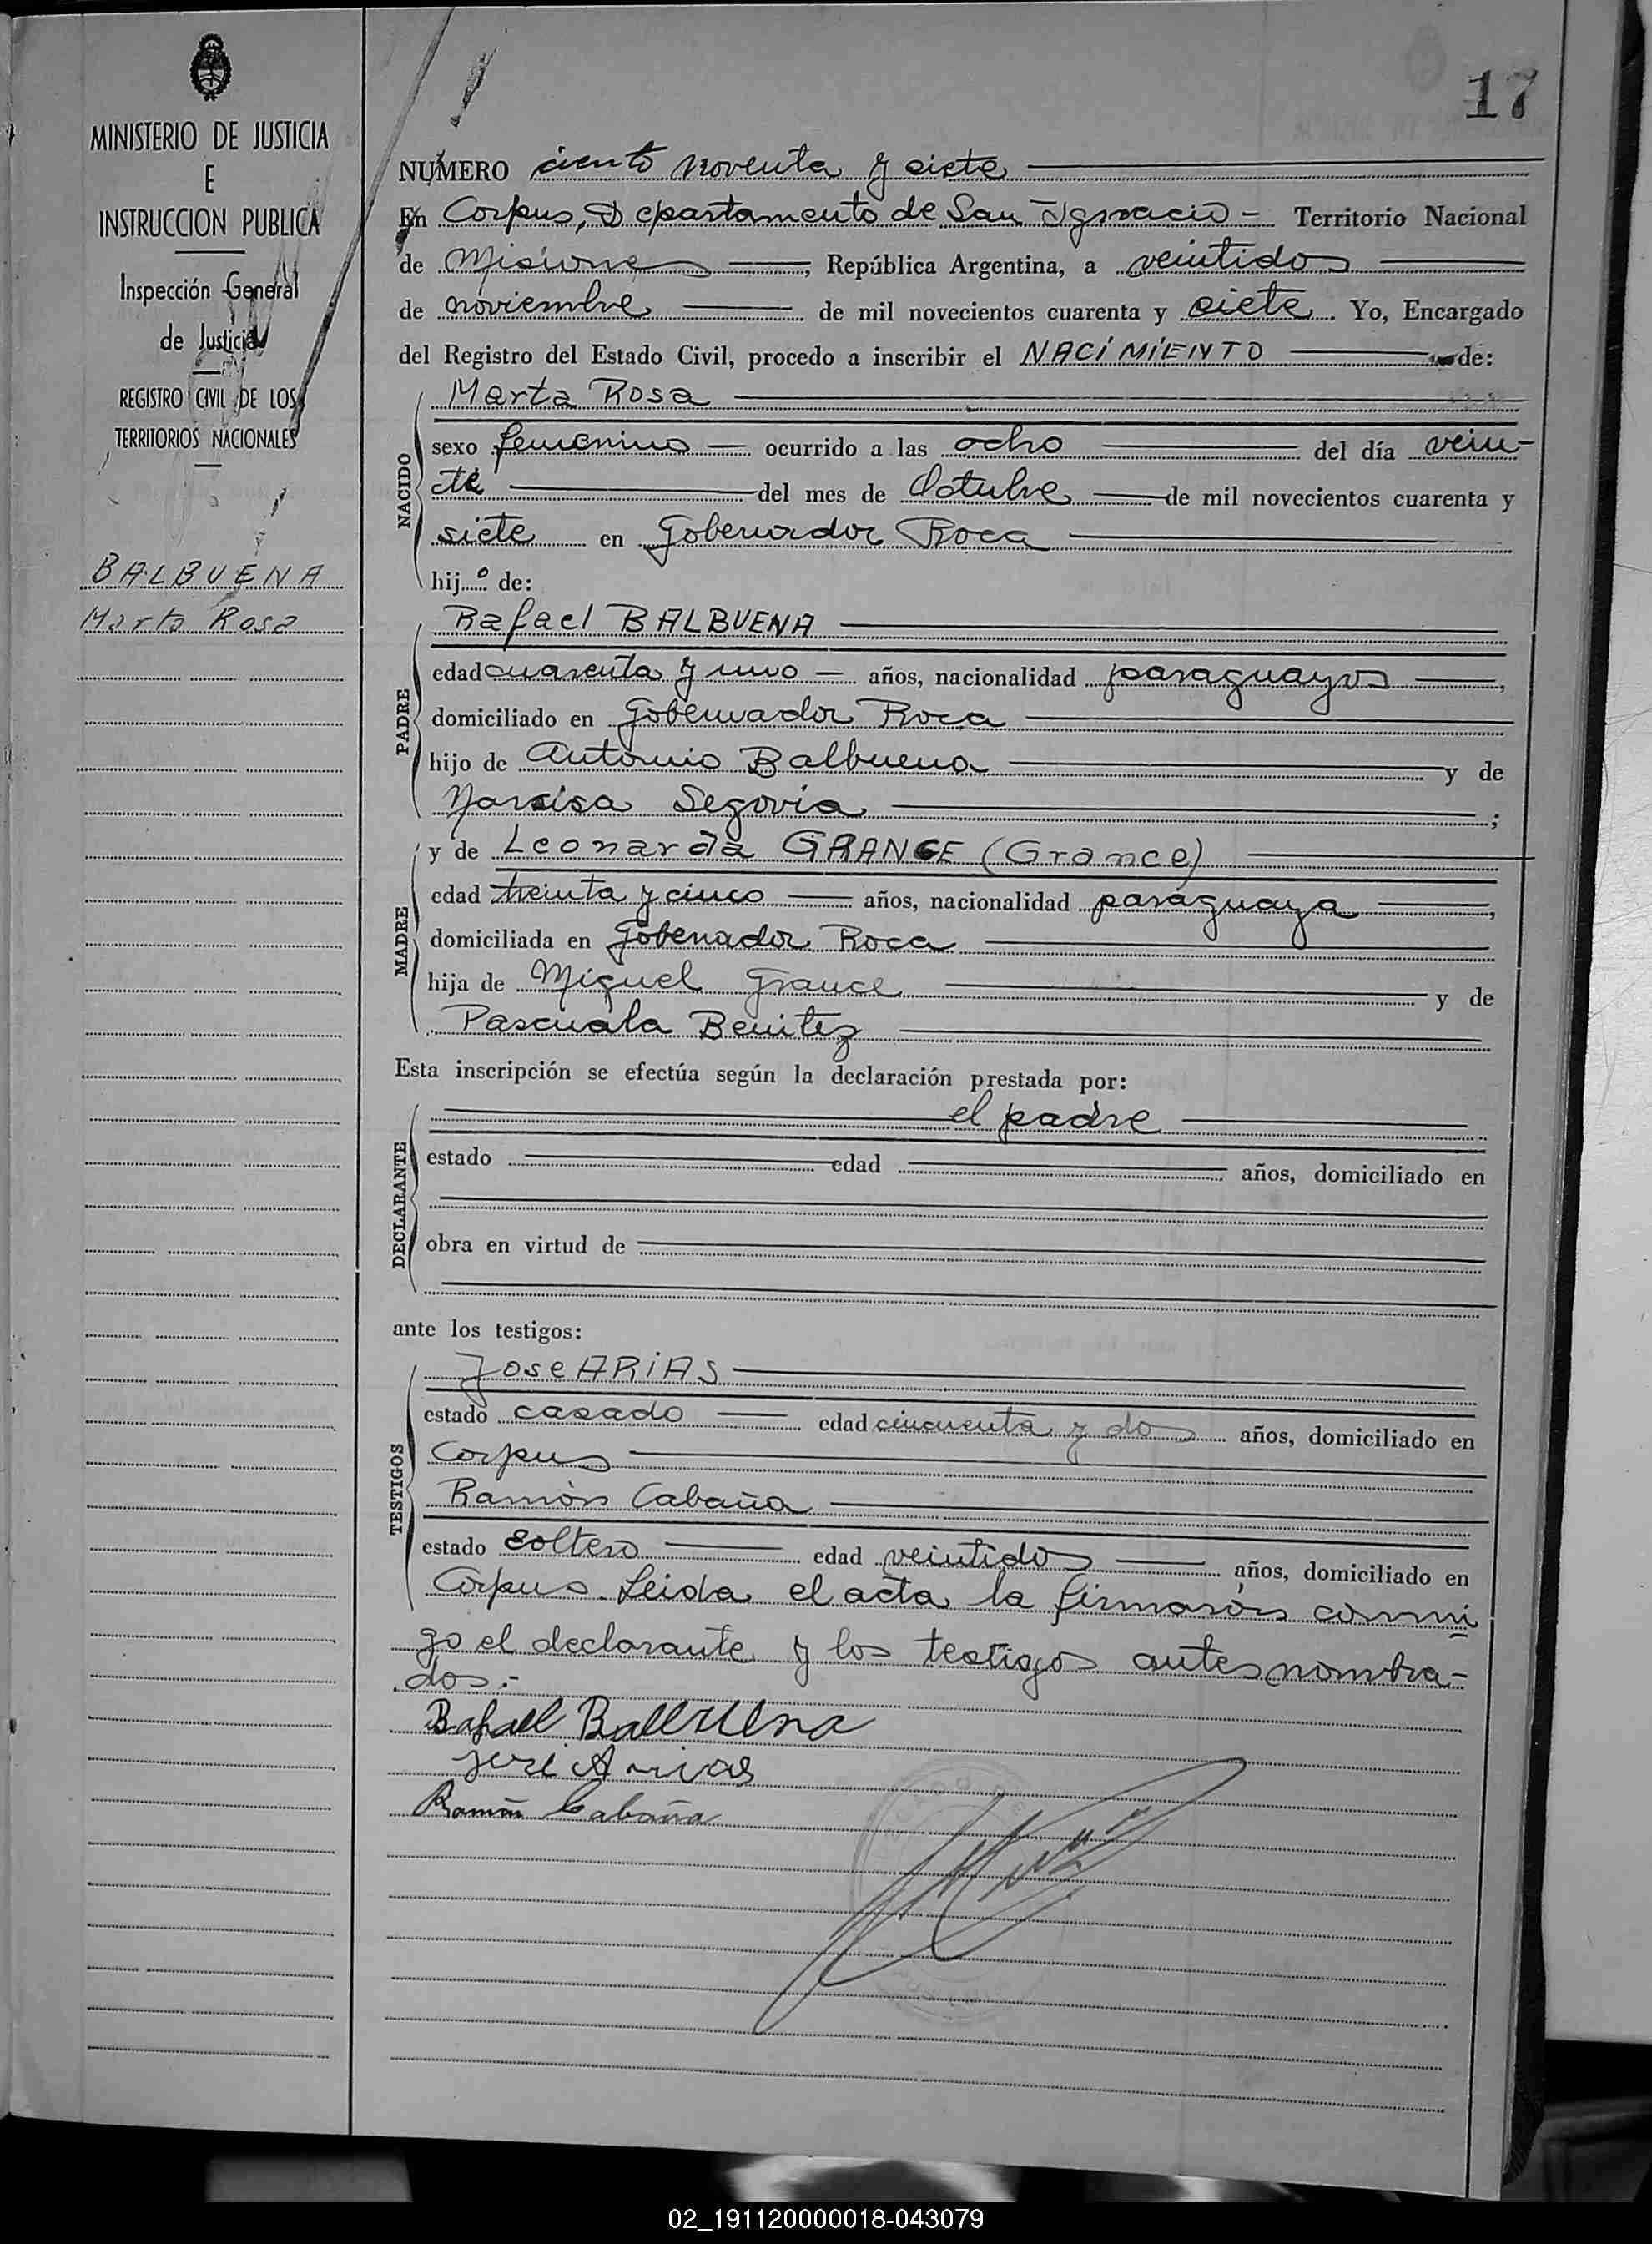 17
MINISTERIO DE JUSTICIA
E
INSTRUCCION PUBLICA
Inspección General
de Justicia
REGISTRO CIVIL DE LOS
TERRITORIOS NACIONALES
BALBUENA
Marta Rosa
NUMERO ciento noventa y siete
En Corpus, Departamento de San Ignacio - Territorio Nacional
de Misiones, República Argentina, a veintidos
de noviembre de mil novecientos cuarenta y siete. Yo, Encargado
del Registro del Estado Civil, procedo a inscribir el NACIMIENTO de:
NACIDO
Marta Rosa
sexo femenino ocurrido a las ocho del día vein-
te del mes de Octubre de mil novecientos cuarenta y
siete en Gobernador Roca
hij...º de:
PADRE
Rafael BALBUENA
edad cuarenta y uno años, nacionalidad paraguayo,
domiciliado en Gobernador Roca
hijo de Antonio Balbuena y de
Narcisa Segovia;
MADRE
y de Leonarda GRANCE (Grance)
edad treinta y cinco años, nacionalidad paraguaya,
domiciliada en Gobernador Roca
hija de Miguel Grance y de
Pascuala Benitez
Esta inscripción se efectúa según la declaración prestada por:
DECLARANTE
el padre
estado edad años, domiciliado en
obra en virtud de
ante los testigos:
TESTIGOS
Jose ARIAS
estado casado edad cincuenta y dos años, domiciliado en
Corpus
Ramón Cabaña
estado soltero edad veintidos años, domiciliado en
Corpus. Leida el acta la firmaron conmi
go el declarante y los testigos antes nombra-
dos.-
Rafael Balbuena
José Arias
Ramón Cabaña
02_191120000018-043079